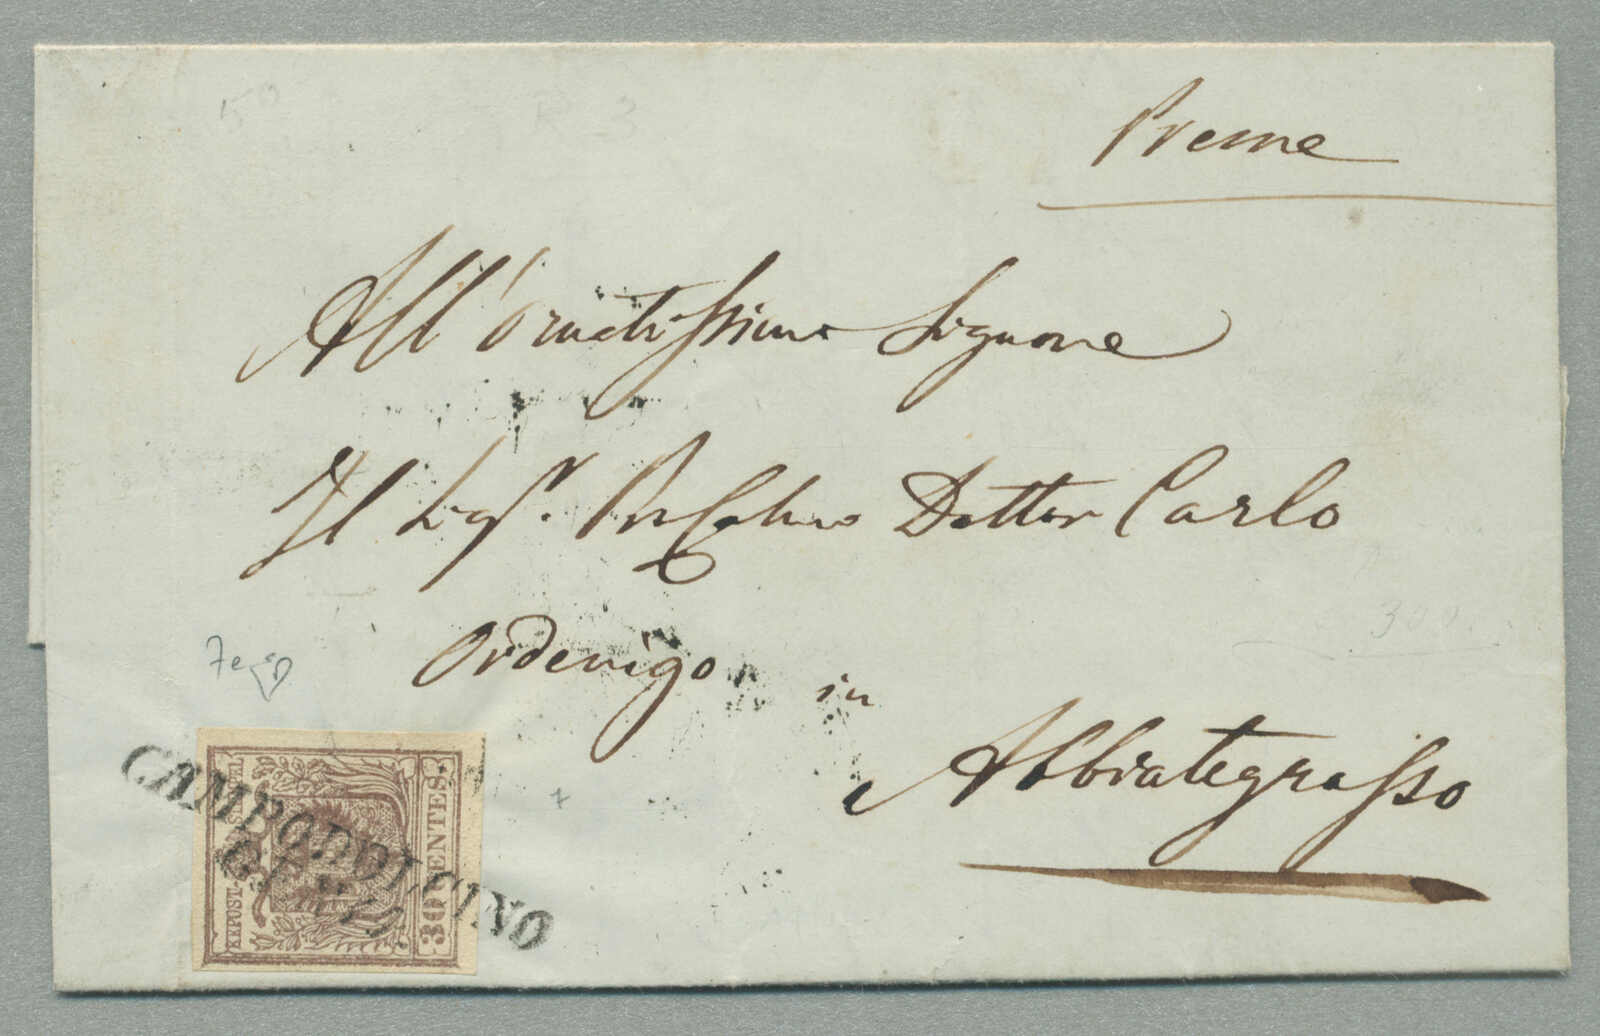 Preme
All'Ornatissimo Signore
Il Sigr. Dottor Carlo
Ordenigo in
Abbiategrasso
CAMPODOLCINO
K.K. POST-STEMPEL
30 CENTES.
300
R 3